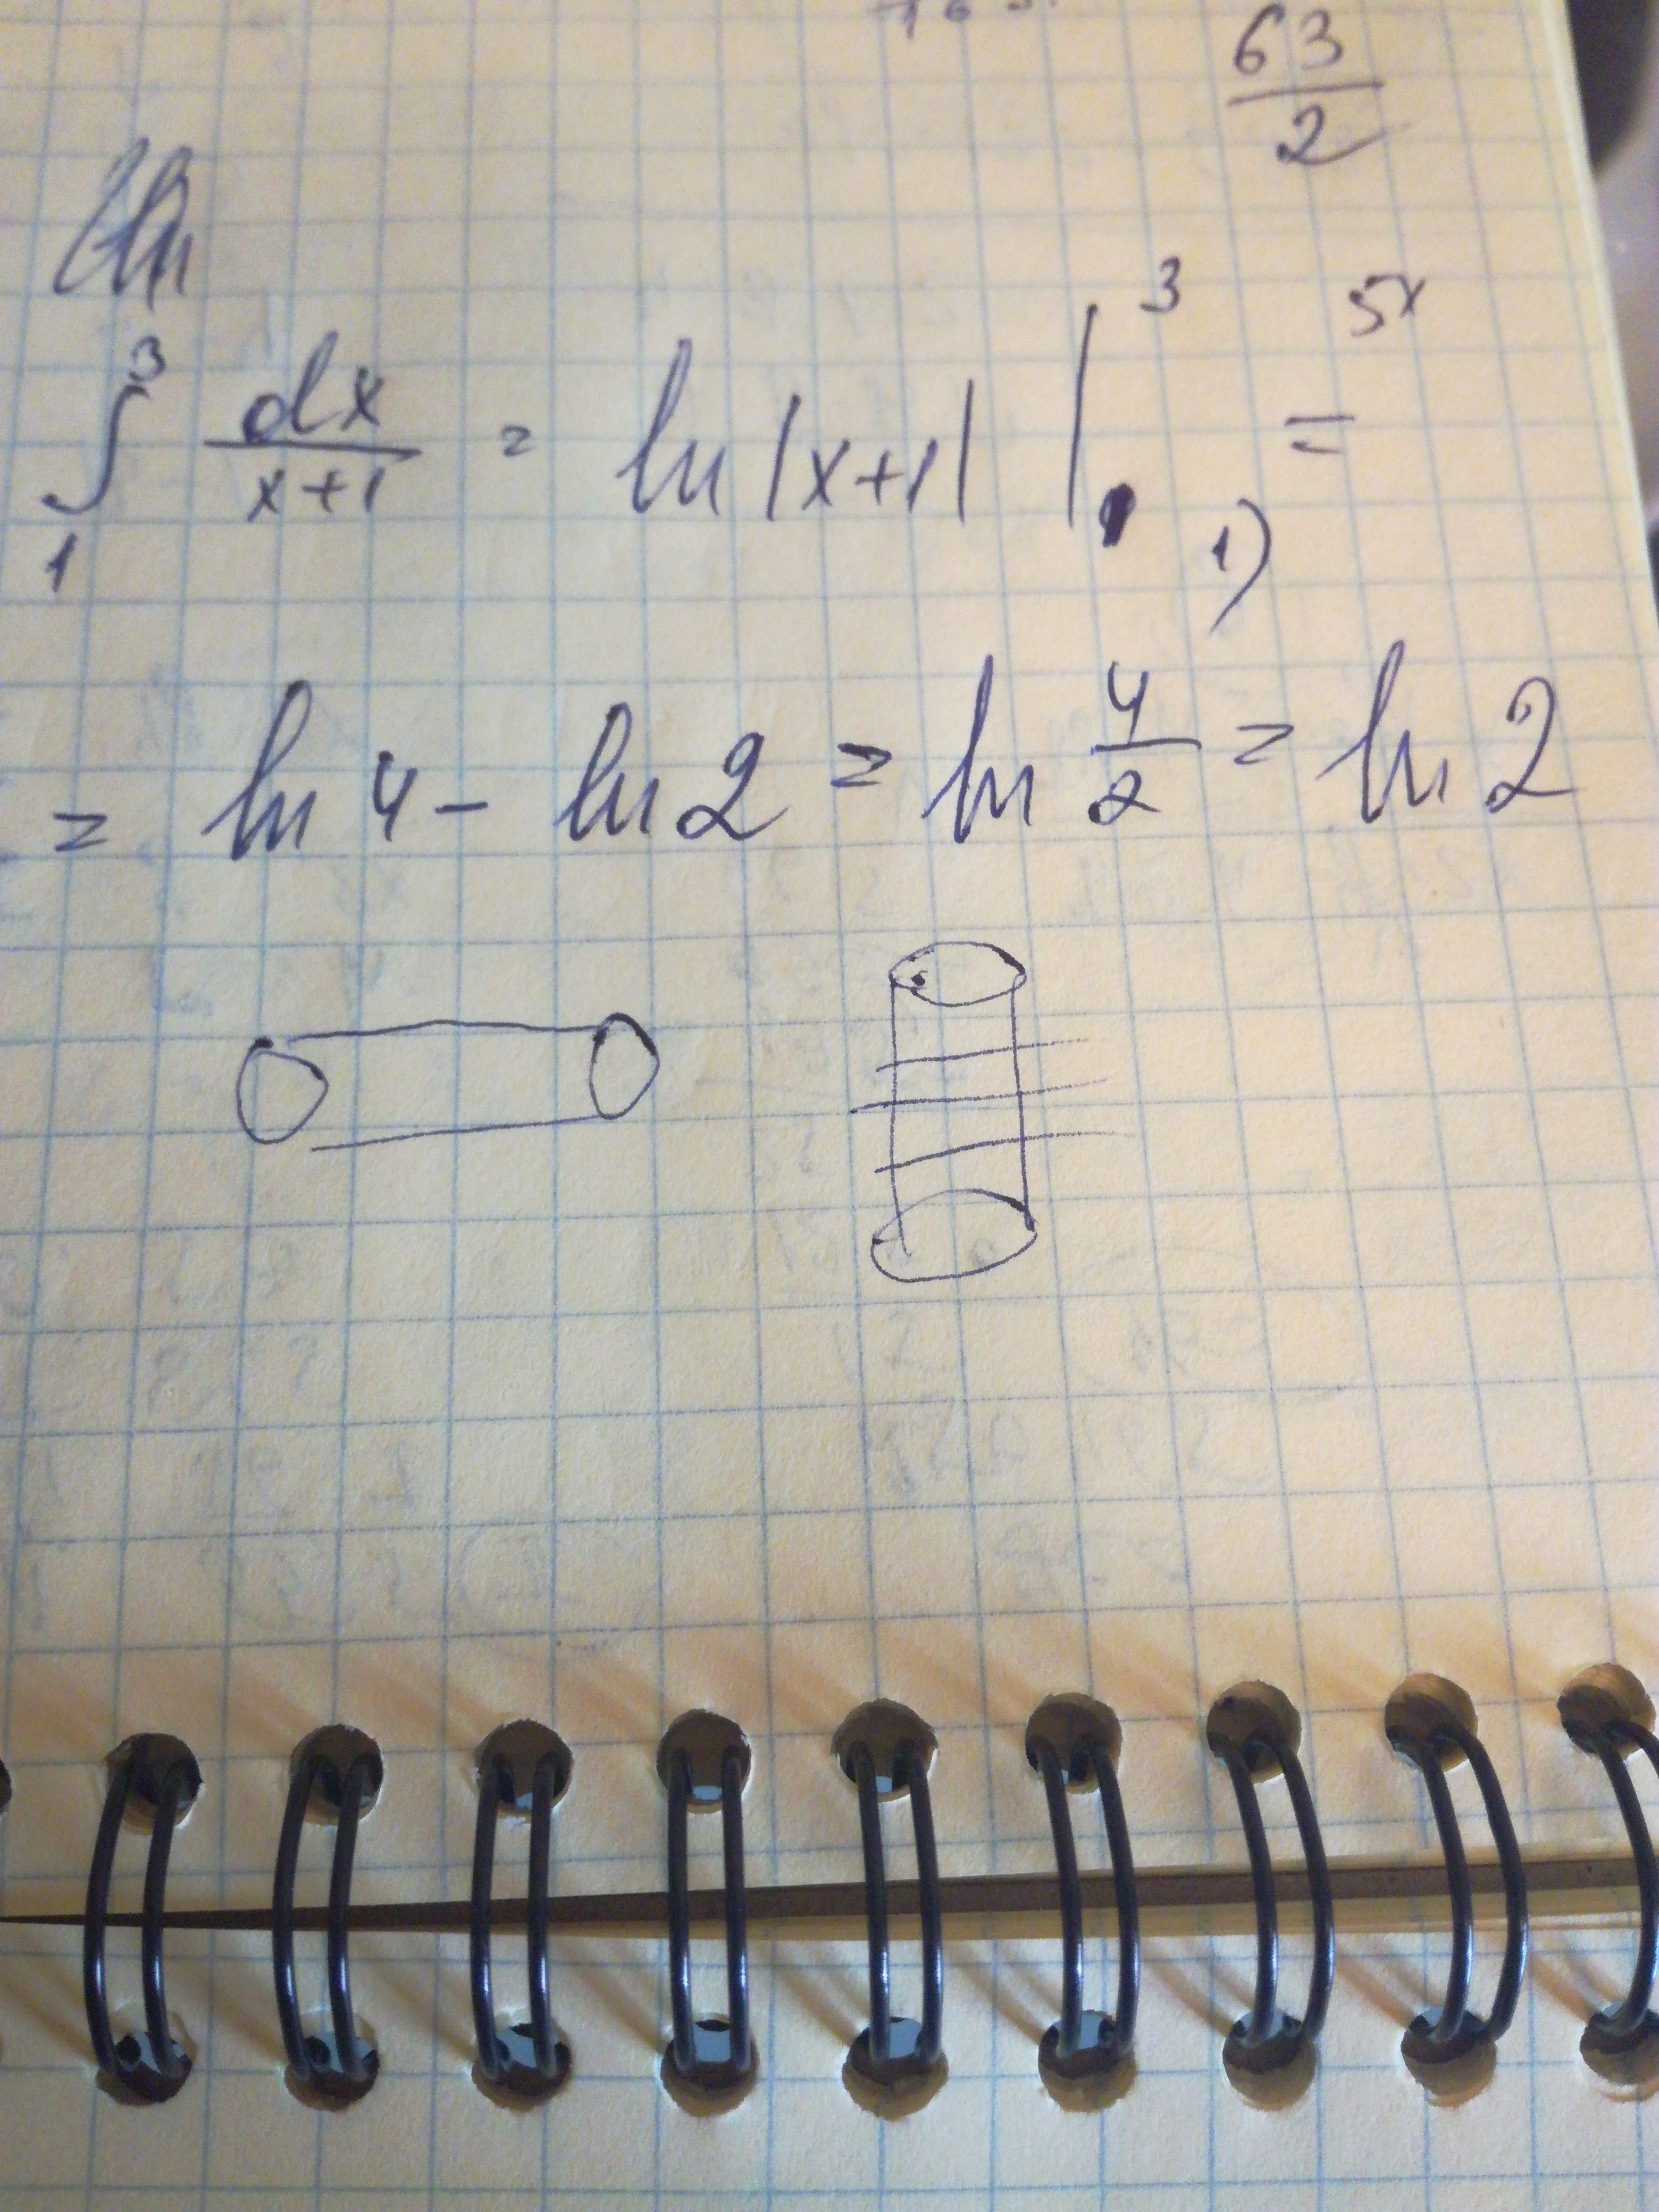 63/2
ln
∫₁³ dx/(x+1) = ln|x+1| |₁³ =
5x
1)
= ln 4 - ln 2 = ln 4/2 = ln 2